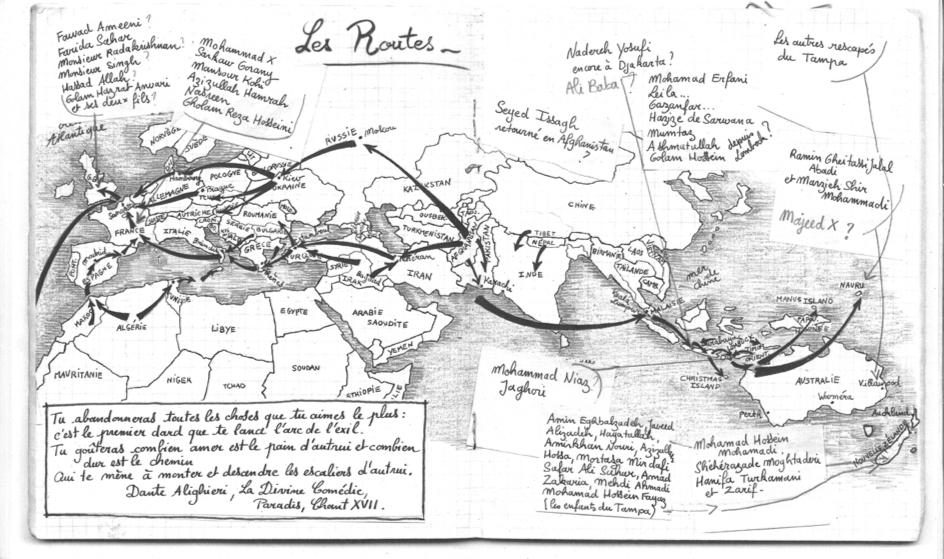 Les Routes
Fawad Ameeni?
Farida Sahar
Monsieur Radakrishnan?
Monsieur Singh?
Hassad Allah?
Golam Hazrat Anvari
et ses deux fils?
Atlantique
Mohammad X
Sarkaw Gorany
Mansour Kohi
Azizullah Hamrah
Nasreen
Gholam Reza Hosseini
Seyed Issagh
retourné en Afghanistan
?
Nadereh Yosufi
encore à Djakarta?
Ali Baba?
Mohamad Erfani
Leila...
Gazanfar...
Hazize de Sarwana
Mumtaz
Ashmatullah depuis
Golam Hossein Lombock
Les autres rescapés
du Tampa
Ramin Gheitassi Jalal
Abadi
et Marzieh Shir
Mohammadi
Majeed X?
NORVÈGE
SUÈDE
RUSSIE
Moscou
POLOGNE
Hambourg
ALLEMAGNE
Prague
Kiev
UKRAINE
FRANCE
AUTRICHE
ROUMANIE
ITALIE
SERBIE
BULGARIE
GRÈCE
Madrid
ESPAGNE
MAROC
ALGÉRIE
TUNISIE
LIBYE
EGYPTE
MAURITANIE
NIGER
TCHAD
SOUDAN
ETHIOPIE
SYRIE
IRAK
Téhéran
IRAN
ARABIE
SAOUDITE
YEMEN
KAZAKSTAN
OUSBEK.
TURKMENISTAN
AFGHANISTAN
PAKISTAN
Karachi
INDE
TIBET
NÉPAL
CHINE
BIRMANIE
LAOS
THAÏLANDE
CAMB.
mer
Chine
MALAISIE
TIMOR
ORIENT
CHRISTMAS
ISLAND
MANUS ISLAND
PAPOU.
NAURU
AUSTRALIE
Woméra
Perth
Villawood
Auckland
NOUVELLE ZÉLANDE
Mohammad Niaz?
Jaghori
Amin Eghbalzadeh, Javeed
Alizadeh, Hayatullah,
Amirkhan Nouri, Azizullah
Holsa, Mortasa Mirdafi
Safar Ali Sahar, Amad
Zakaria, Mehdi Ahmadi
Mohamad Hossein Fayaz
(les enfants du Tampa)
Mohamad Hossein
Mohamadi,
Shéhérazade Moghtaderi
Hanifa Turkamani
et Zarif.
Tu abandonneras toutes les choses que tu aimes le plus:
c'est le premier dard que te lance l'arc de l'exil.
Tu goûteras combien amer est le pain d'autrui et combien
dur est le chemin
Qui te mène à monter et descendre les escaliers d'autrui.
Dante Alighieri, La Divine Comédie,
Paradis, Chant XVII.